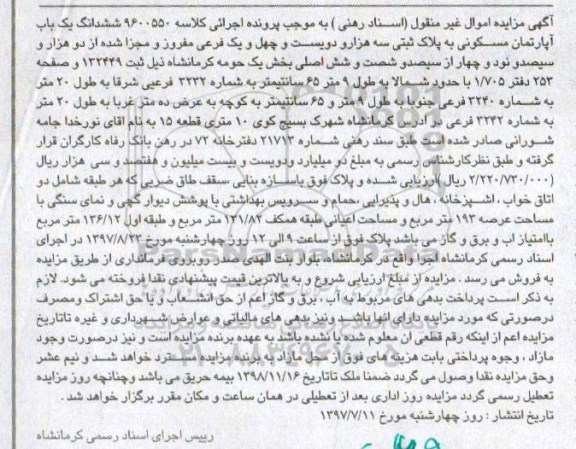 آگهی مزایده اموال غیر منقول (اسناد رهنی ) به موجب پرونده اجرائی کلاسه ۹۶۰۰۵۵۰ ششدانگ یک باب
آپارتمان مسکونی به پلاک ثبتی سه هزارو دویست و چهل و یک فرعی مفروز و مجزا شده از دو هزار و
سیصدو نود و چهار از سیصدو شصت و شش اصلی بخش یک حومه کرمانشاه ذیل ثبت ۱۳۲۴۴۹ و صفحه
۲۵۳ دفتر ۱/۷۰۵ با حدود شمالا به طول ۹ متر ۶۵ سانتیمتر به شماره ۳۲۳۲ فرعیی شرقا به طول ۲۰ متر
به شماره ۳۲۴۰ فرعی جنوبا به طول ۹ متر و ۶۵ سانتیمتر به کوچه به عرض ده متر غربا به طول ۲۰ متر
به شماره ۳۲۴۲ فرعی در ادرس کرمانشاه شهرک بسیج کوی ۱۰ متری قطعه ۱۵ به نام اقای نورخدا جامه
شورانی صادر شده است طبق سند رهنی شماره ۲۱۷۱۳ دفترخانه ۷۲ در رهن بانک رفاه کارگران قرار
گرفته و طبق نظرکارشناس رسمی به مبلغ دو میلیارد ودویست و بیست میلیون و هفتصد و سی هزار ریال
(۲/۲۲۰/۷۳۰/۰۰۰ ریال )ارزیابی شده و پلاک فوق باسازه بنایی ،سقف طاق ضربی که هر طبقه شامل دو
اتاق خواب ، اشپزخانه ، هال و پذیرایی ،حمام و سرویس بهداشتی با پوشش دیوار گچی و نمای سنگی با
مساحت عرصه ۱۹۳ متر مربع و مساحت اعیانی طبقه همکف ۱۳۱/۸۲ متر مربع و طبقه اول ۱۳۶/۱۲ متر مربع
باامتیاز اب و برق و گاز می باشد پلاک فوق از ساعت ۹ الی ۱۲ روز چهارشنبه مورخ ۱۳۹۷/۸/۲۳ در اجرای
اسناد رسمی کرمانشاه اجرا واقع در کرمانشاه، بلوار بنت الهدی صدر روبروی فرمانداری از طریق مزایده
به فروش می رسد . مزایده از مبلغ ارزیابی شروع و به بالاترین قیمت پیشنهادی نقدا فروخته می شود. لازم
به ذکر است پرداخت بدهی های مربوط به آب ، برق و گاز اعم از حق انشعاب و یا حق اشتراک ومصرف
درصورتی که مورد مزایده دارای انها باشد ونیز بدهی های مالیاتی و عوارض شهرداری و غیره تاتاریخ
مزایده اعم از اینکه رقم قطعی ان معلوم شده یا نشده باشد به عهده برنده مزایده است و نیز درصورت وجود
مازاد ، وجوه پرداختی بابت هزینه های فوق از محل مازاد به برنده مزایده مسترد خواهد شد و نیم عشر
وحق مزایده نقدا وصول می گردد ضمنا ملک تاتاریخ ۱۳۹۸/۱۱/۱۶ بیمه حریق می باشد وچنانچه روز مزایده
تعطیل رسمی گردد مزایده روز اداری بعد از تعطیلی در همان ساعت و مکان مقرر برگزار خواهد شد .
تاریخ انتشار : روز چهارشنبه مورخ ۱۳۹۷/۷/۱۱
رییس اجرای اسناد رسمی کرمانشاه